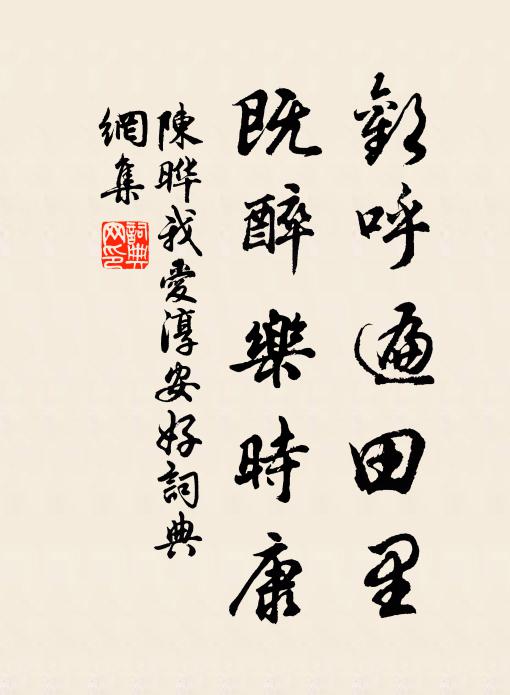 歡呼遍田里
既醉樂時康
陳曄我愛淳安好詞典
網集
詞典
网印